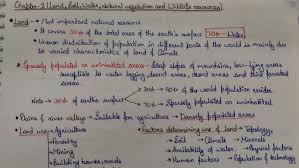 Chapter-2 (Land, Soil, Water, natural vegetation and Wildlife resources)
Land → Most important natural resource
→ It covers 30% of the total area of the earth's surface 70% - Water
→ Uneven distribution of population in different parts of the world is mainly due
to varied characteristics of land and climate.
→ Sparsely populated or uninhabited areas - Steep slopes of mountains, low-lying areas
susceptible to water logging, desert areas, dense areas and thick forested
areas.
Note → 30% of earth's surface → 30% → 90% of the world population resides.
→ 70% → Sparsely populated or uninhabited
→ Plains of river valleys → Suitable for agriculture → Densely populated areas
Land use → Agriculture
→ Forestry
→ Mining
→ Building houses, roads
Factors determining use of land → Topology,
→ Soil → Climate
→ Minerals
→ Availability of water
→ Human factors
→ Population → Technology